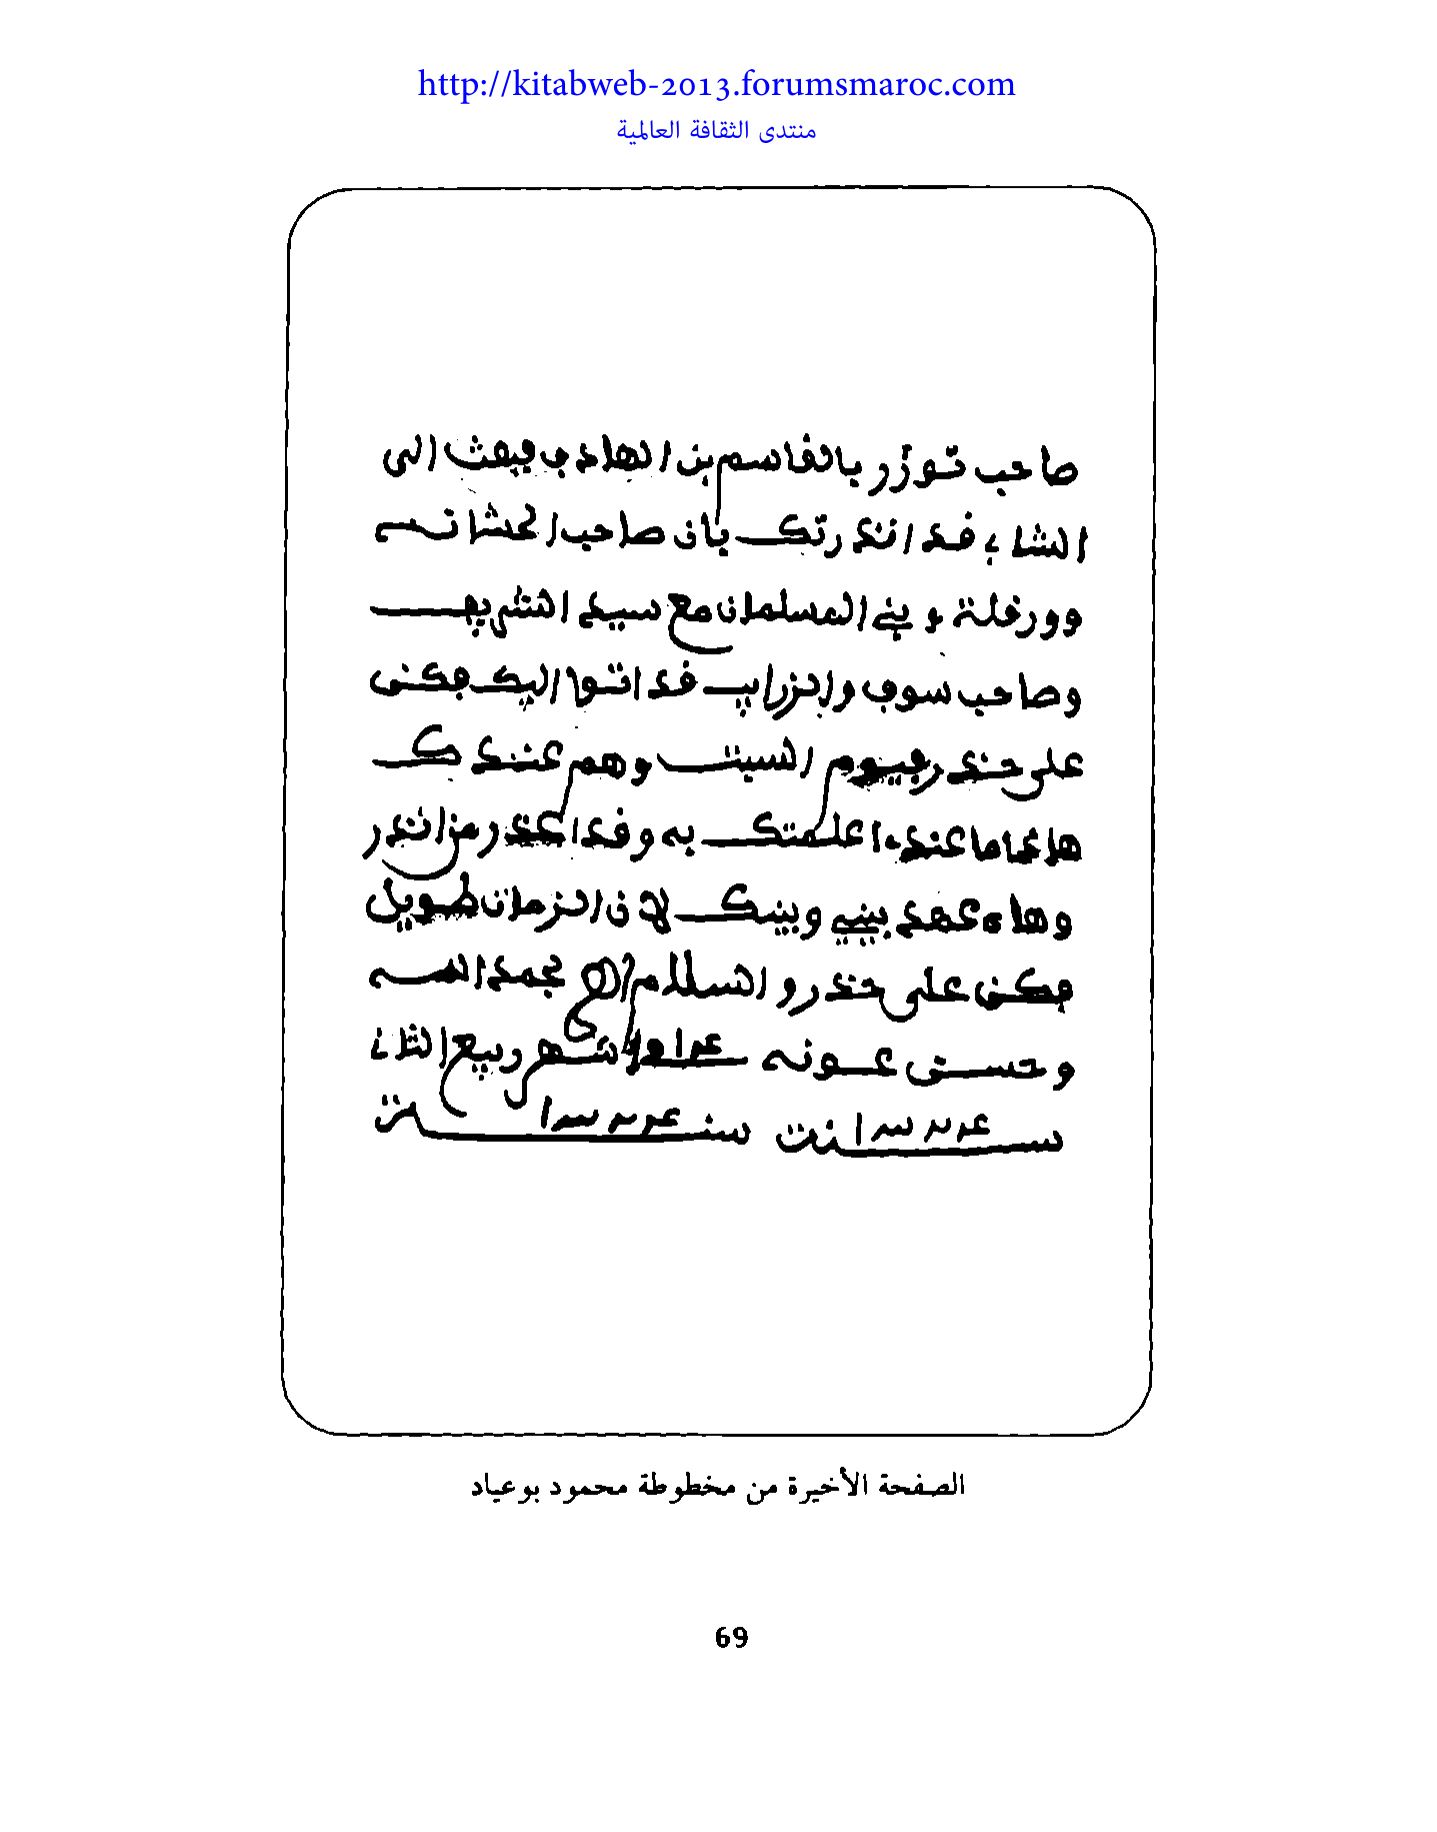 http://kitabweb-2013.forumsmaroc.com
منتدى الثقافة العالمية
صاحب توزر بالقاسم بن الهادف فبعث الى
قد انذرتك بان صاحب الحشانه
وورقلة و بني المسلمان مع سيد الشريف
وصاحب سوف والزراب قد اتوا اليك فكن
على حذر فيوم السبت وهم عندك
ها ما عنده اعلمتك به وقد اعذر من انذر
وهاه عهد بيني وبينك لان الزمان طويل
فكن على حذر والسلام بحمد الله
وحسن عونه شهر ربيع الثان
سنة
الصفحة الأخيرة من مخطوطة محمود بوعياد
69